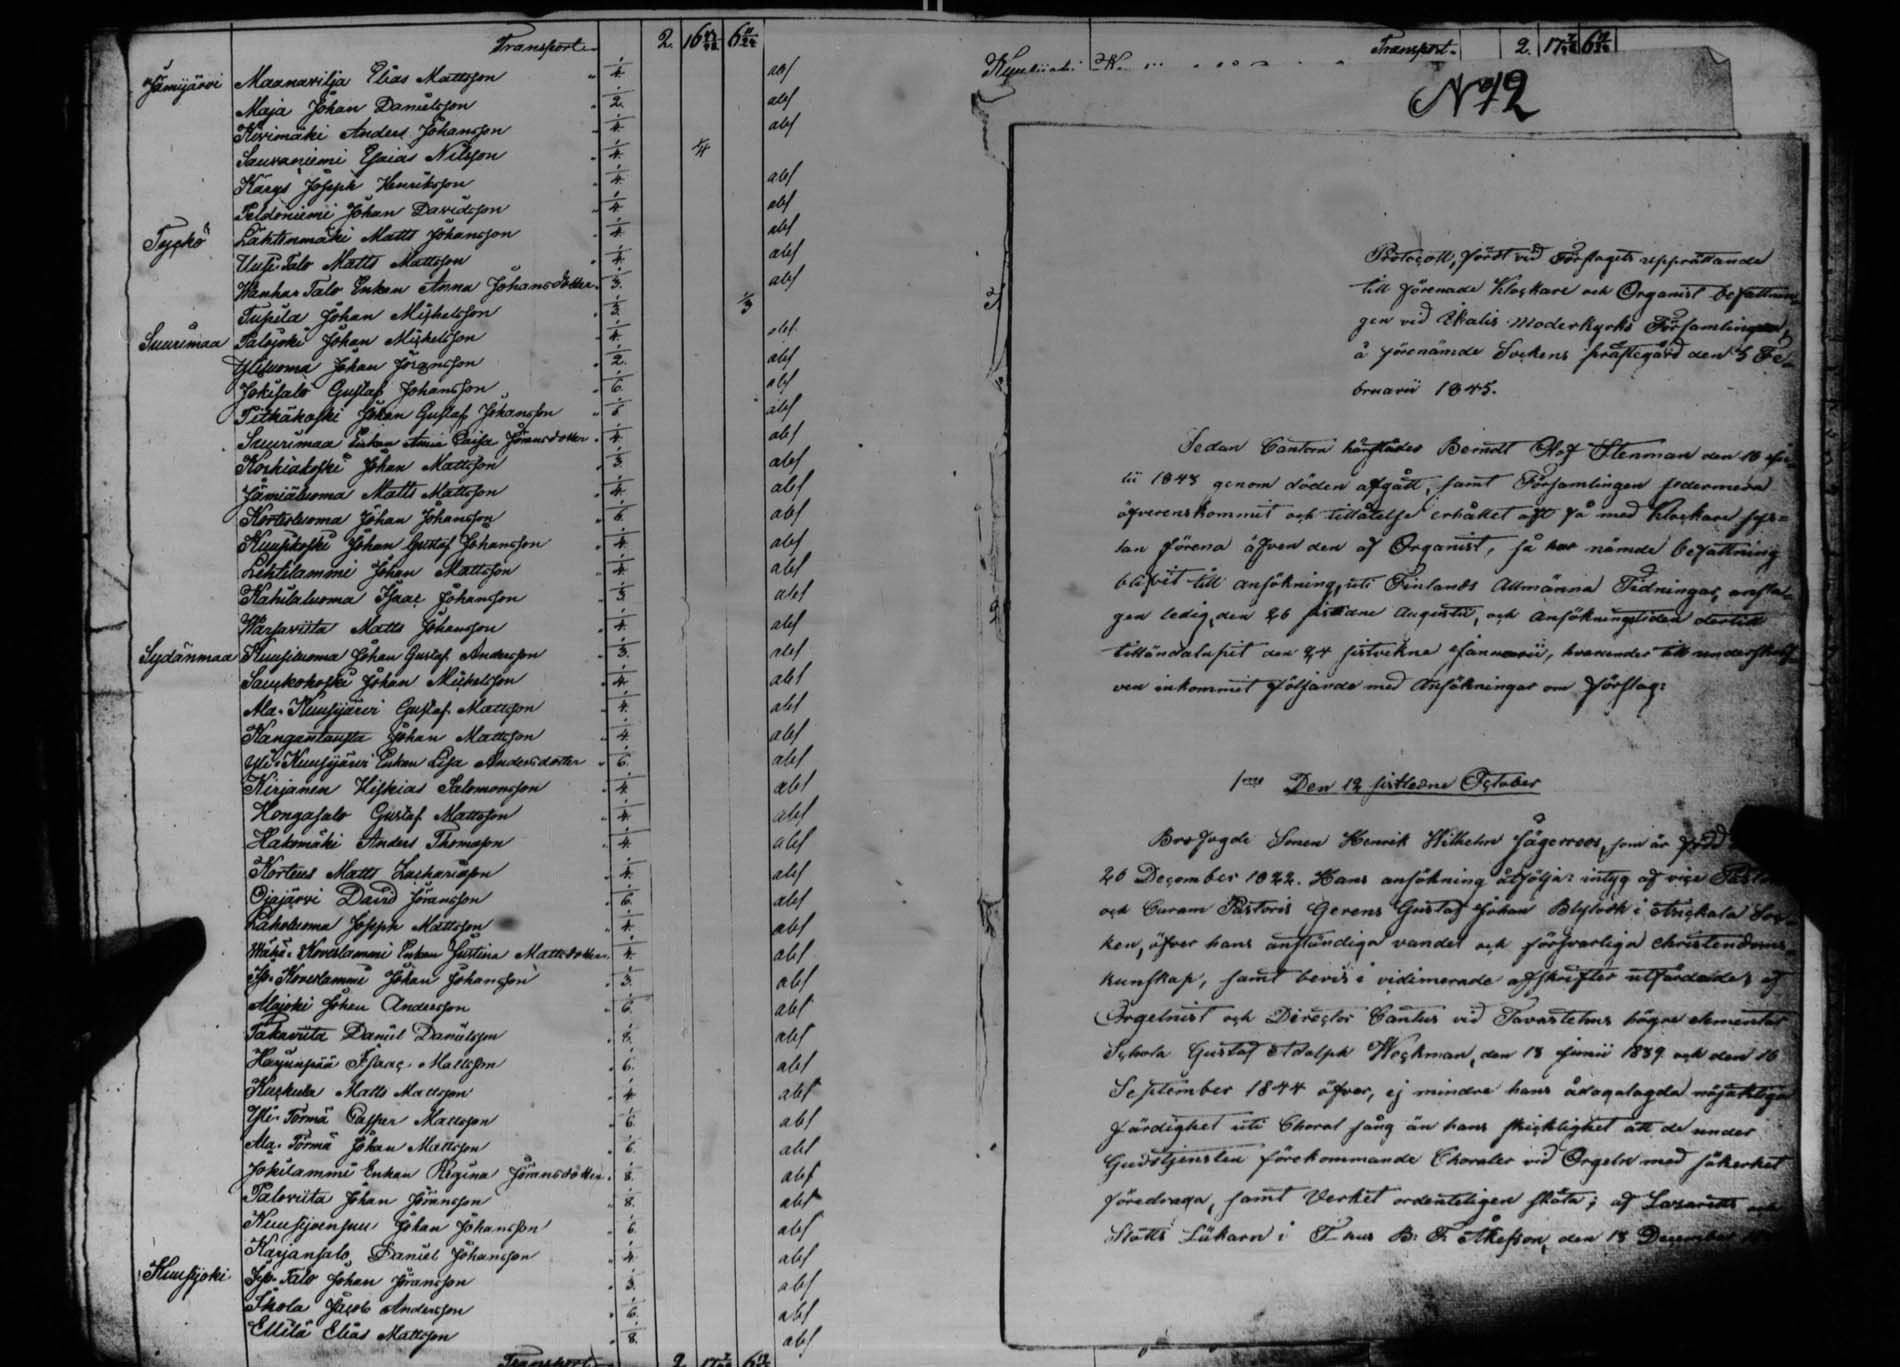 Transport 2. 16 6
Jämijärvi Maanavilja Elias Mattsson 1/4. abs
Maja Johan Danielsson 1/2. abs
Kivimäki Anders Johansson 1/4. abs
Sauvaniemi Esaias Nilsson 1/4. 1/4
Karys Joseph Henriksson 1/4. abs
Peldoniemi Johan Davidsson 1/4. abs
Tyckö Lähtenmäki Matts Johansson 1/4. abs
Uusi-Talo Matts Mattsson 1/4. abs
Wanha-Talo Enkan Anna Johansdotter 1/3. abs
Tupila Johan Michelsson 1/3. 1/3
Suurimaa Palojoki Johan Michelsson 1/4. abs
Yliluoma Johan Göransson 1/2. abs
Jokisalo Gustaf Johansson 1/6. abs
Pitkäkoski Johan Gustaf Johansson abs
Suurimaa Enkan Anna Caisa Göransdotter 1/4. abs
Koskiakoski Johan Mattsson 1/3. abs
Jämiäluoma Matts Mattsson 1/4. abs
Kortesluoma Johan Johansson 1/6. abs
Kuusikoski Johan Gustaf Johansson 1/4. abs
Lehtilammi Johan Mattsson 1/4. abs
Kahilaluoma Isaac Johansson 1/3. abs
Warsaviita Matts Johansson 1/4. abs
Sydänmaa Kuusiluoma Johan Gustaf Andersson 1/3. abs
Sauckokoski Johan Michelsson 1/4. abs
Ala-Kuusijärvi Gustaf Mattsson 1/4. abs
Kangantausta Johan Mattsson 1/4. abs
Yli-Kuusijärvi Enkan Lisa Andersdotter 1/6. abs
Kirjanen Hiskias Salomonsson 1/4. abs
Hongasalo Gustaf Mattsson 1/4. abs
Hakomäki Anders Thomasson 1/4. abs
Korteus Matts Zachariasson 1/4. abs
Ojajärvi David Göransson 1/6. abs
Laholuoma Joseph Mattsson 1/4. abs
Wähä-Koveslammi Enkan Justina Mattsdotter 1/4. abs
Iso-Koveslammi Johan Johansson 1/3. abs
Alajoki Johan Andersson 1/6. abs
Takaviita Daniel Danielsson 1/8. abs
Harjunpää Isaac Mattsson 1/6. abs
Kuskula Matts Mattsson 1/4. abs
Yli-Törmä Casper Mattsson 1/6. abs
Ala-Törmä Johan Mattsson 1/6. abs
Jokilammi Enkan Regina Göransdotter 1/8. abs
Paloviita Johan Göransson 1/8. abs
Kuusijoensuu Johan Johansson 1/6. abs
Karjansalo Daniel Johansson 1/4. abs
Kuusijoki Iso-Talo Johan Göransson 1/3. abs
Skola Jacob Andersson 1/6. abs
Ellilä Elias Mattsson 1/8. abs
Transport 2. 17 6
Transport 2. 17 6
N 72
Protocoll, fördt vid Förslagets upprättande
till förenade Klockare och Organist befattnin-
gen vid Ikalis Moderkyrko Församlingen,
å förenämde Sockens prästegård den 5 Fe-
bruarii 1845.
Sedan Cantorn härstädes Berndt Olof Stenman den 18
1843 genom döden afgått, samt Församlingen sedermera
öfverenskommit och tillåtelse erhållet att få med Klockare sys-
lan förena äfven den af Organist, så har nämde befattning
blifvit till ansökning, uti Finlands Allmänna Tidningar, ansla-
gen ledig, den 26 sistledne Augusti, och Ansökningstiden dertill
tilländalupit den 24 sistvikne Januarii, hvarunder till underskrif-
ven inkommit följande med Ansökningar om förslag:
1mo Den 12 sistledne October
Brofogde Sonen Henrik Wilhelm Jägerroos, som är född
26 December 1822. Hans ansökning åtfölja: intyg af vice Pastor
och Curam Pastoris Gerens Gustaf Johan Blystedt i Asickala Soc-
ken, öfver hans anständiga vandel och försvarliga christendoms
kunskap, samt bevis i vidimerade afskrifter utfärdade, af
Orgelnist och Director Cantus vid Tavastehus högre elementar
Schola Gustaf Adolph Hockman, den 18 Junii 1839 och den 16
September 1844 öfver, ej mindre hans ådagalagda nöjaktiga
färdighet uti Choral sång än hans skicklighet att de under
Gudstjensten förekommande Choraler vid Orgeln med säkerhet
föredraga, samt Verket ordenteligen sköta; af Lazaretts och
Slotts Läkarn i T. hus B. F. Åkesson, den 18 December